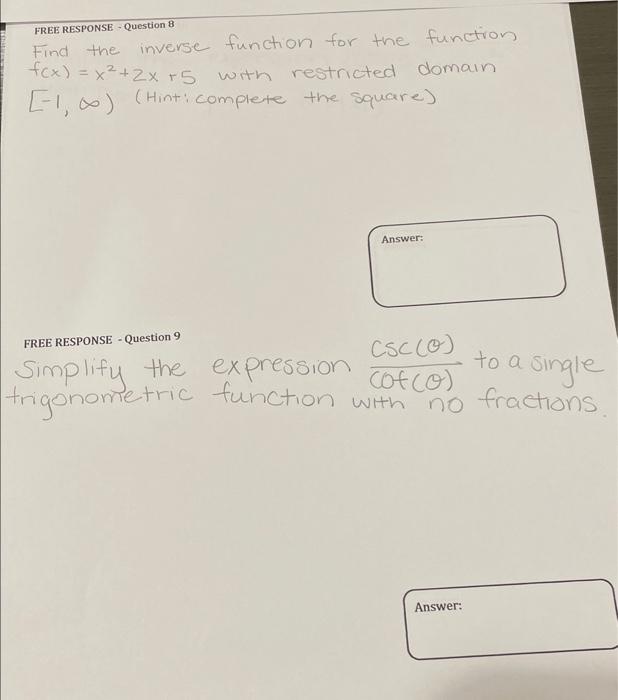 FREE RESPONSE - Question 8
Find the inverse function for the function
f(x) = x² + 2x + 5 with restricted domain
[-1, ∞) (Hint: complete the square)
Answer:
FREE RESPONSE - Question 9
Simplify the expression csc(θ)/cot(θ) to a single
trigonometric function with no fractions.
Answer: